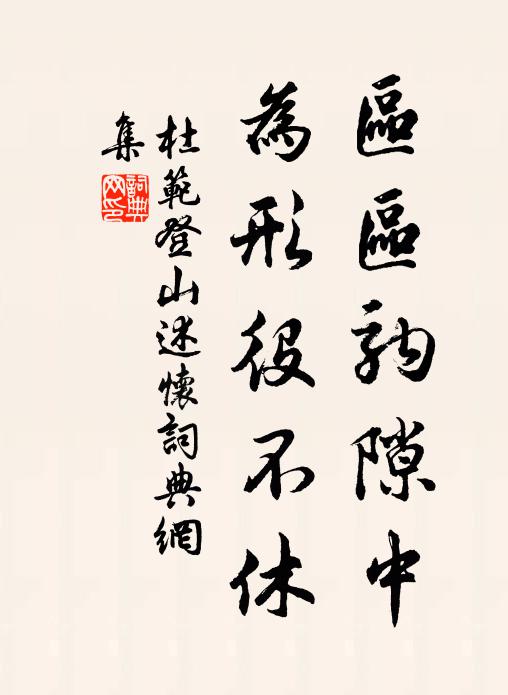 區區駒隙中
為形役不休
杜範登山述懷詞典網
集
詞典
网印